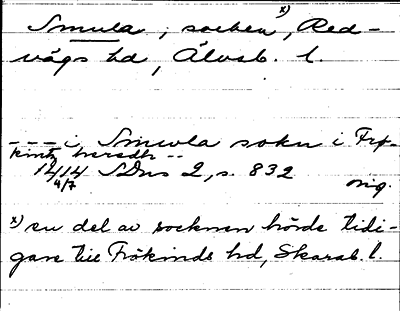 Smula, socken x), Red-
vägs hd, Älvsb. l.
--- i, Smwla sokn i Frø-
kinty heredh --
1414 4/7 SDns 2, s. 832
orig.
x) en del av socknen hörde tidi-
gare till Frökinds hd, Skarab. l.